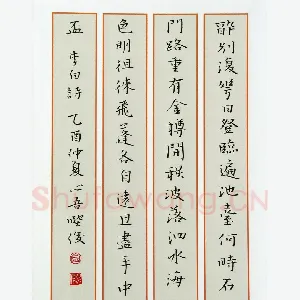 醉別復幾日登臨遍池臺何時石
門路重有金樽開秋波落泗水海
色明徂徠飛蓬各自遠且盡手中
盃 李白詩 乙酉仲夏
Shufawang.CN